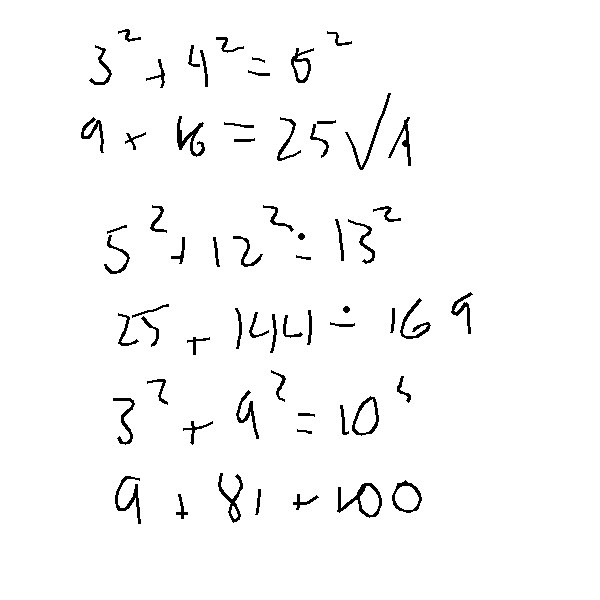 3² + 4² = 5²
9 + 16 = 25 √1
5² + 12² ÷ 13²
25 + 144 ÷ 169
3² + 9² = 10⁵
9 + 81 + 100